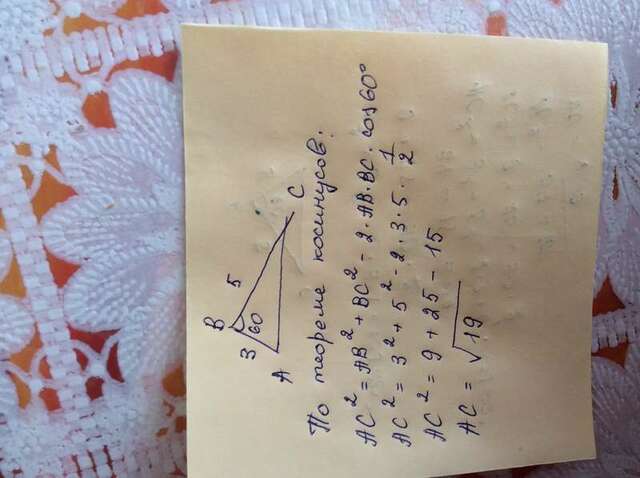 B
3
60
5
A
C
По теореме косинусов:
AC² = AB² + BC² - 2·AB·BC·cos60°
AC² = 3² + 5² - 2·3·5·1/2
AC² = 9 + 25 - 15
AC = √19